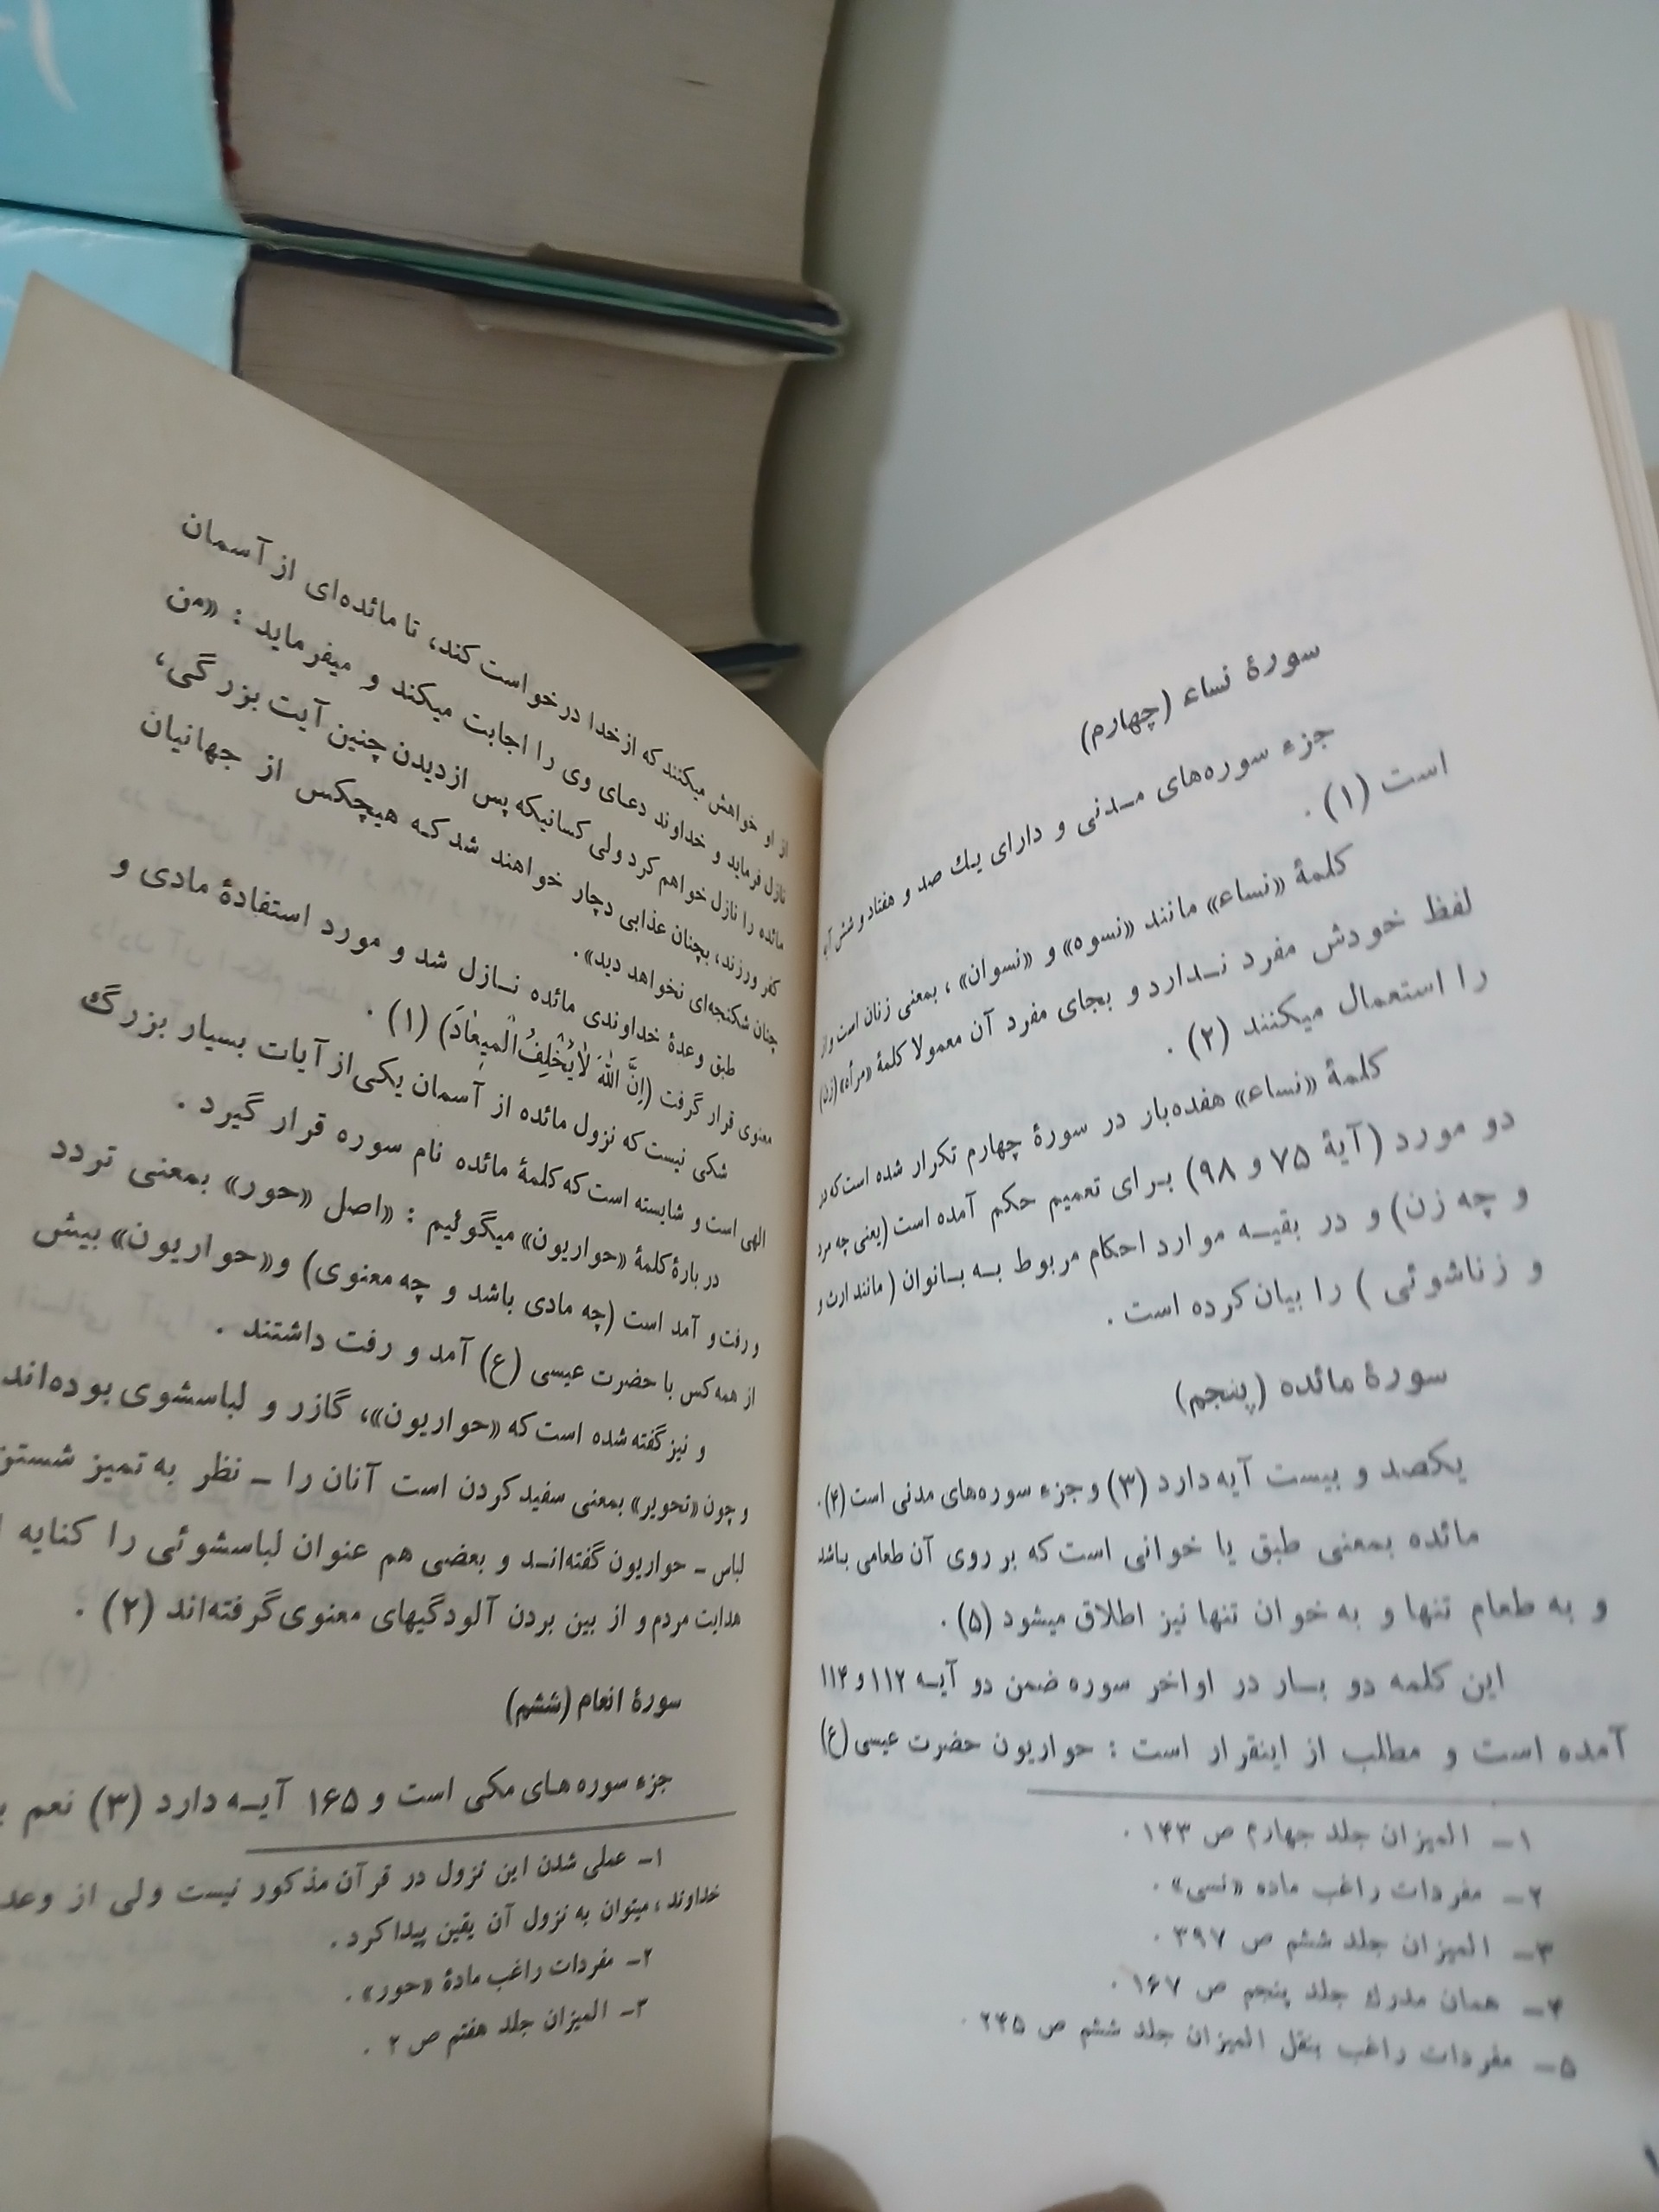 سورهٔ نساء (چهارم)
جزء سوره‌های مـدنی و دارای یك صد و هفتاد و شش آیه
است (۱) .
کلمهٔ «نساء» مانند «نسوه» و «نسوان» ، بمعنی زنان است و از
لفظ خودش مفرد نـدارد و بجای مفرد آن معمولا کلمهٔ «مرأه» (زن)
را استعمال میکنند (۲) .
کلمهٔ «نساء» هفده‌بار در سورهٔ چهارم تکرار شده است که در
دو مورد (آیهٔ ۷۵ و ۹۸) بـرای تعمیم حکم آمده است (یعنی چه مرد
و چه زن) و در بقیـه موارد احکام مربوط بـه بـانوان (مانند ارث و
و زناشوئی ) را بیان کرده است .
سورهٔ مائده (پنجم)
یکصد و بیست آیه دارد (۳) و جزء سوره‌های مدنی است (۴).
مائده بمعنی طبق یا خوانی است که بر روی آن طعامی باشد
و به طعام تنها و به خوان تنها نیز اطلاق میشود (۵) .
این کلمه دو بـار در اواخر سوره ضمن دو آیـه ۱۱۲ و ۱۱۴
آمده است و مطلب از اینقرار است : حواریون حضرت عیسی (ع)
۱ــ المیزان جلد چهارم ص ۱۴۳ .
۲ــ مفردات راغب ماده «نسی» .
۳ــ المیزان جلد ششم ص ۳۹۷ .
۴ــ همان مدرك جلد پنجم ص ۱۶۷ .
۵ــ مفردات راغب بنقل المیزان جلد ششم ص ۲۴۵ .
از او خواهش میکنند که از خدا درخواست کند، تا مائده‌ای از آسمان
نازل فرماید و خداوند دعای وی را اجابت میکند و میفرماید : «من
مائده را نازل خواهم کرد ولی کسانیکه پس ازدیدن چنین آیت بزرگی،
کفر ورزند، بچنان عذابی دچار خواهند شد کـه هیچکس از جهانیان
چنان شکنجه‌ای نخواهد دید» .
طبق وعدهٔ خداوندی مائده نـازل شد و مورد استفادهٔ مادی و
معنوی قرار گرفت (اِنَّ اللّٰهَ لاٰیُخْلِفُ الْمیٖعٰادَ) (۱) .
شکی نیست که نزول مائده از آسمان یکی از آیات بسیار بزرگ
الهی است و شایسته است که کلمهٔ مائده نام سوره قرار گیرد .
در بارهٔ کلمهٔ «حواریون» میگوئیم : «اصل «حور» بمعنی تردد
و رفت و آمد است (چه مادی باشد و چه معنوی) و «حواریون» بیش
از همه کس با حضرت عیسی (ع) آمد و رفت داشتند .
و نیز گفته شده است که «حواریون»، گازر و لباسشوی بوده‌اند
و چون «تحویر» بمعنی سفید کردن است آنان را ــ نظر به تمیز شستن
لباس ــ حواریون گفته‌انـد و بعضی هم عنوان لباسشوئی را کنایه
هدایت مردم و از بین بردن آلودگیهای معنوی گرفته‌اند (۲) .
سورهٔ انعام (ششم)
جزء سوره هـای مکی است و ۱۶۵ آیـه دارد (۳) نعم
۱ــ عملی شدن این نزول در قرآن مذکور نیست ولی از وعد
خداوند ، میتوان به نزول آن یقین پیدا کرد .
۲ــ مفردات راغب مادهٔ «حور» .
۳ــ المیزان جلد هفتم ص ۲ .